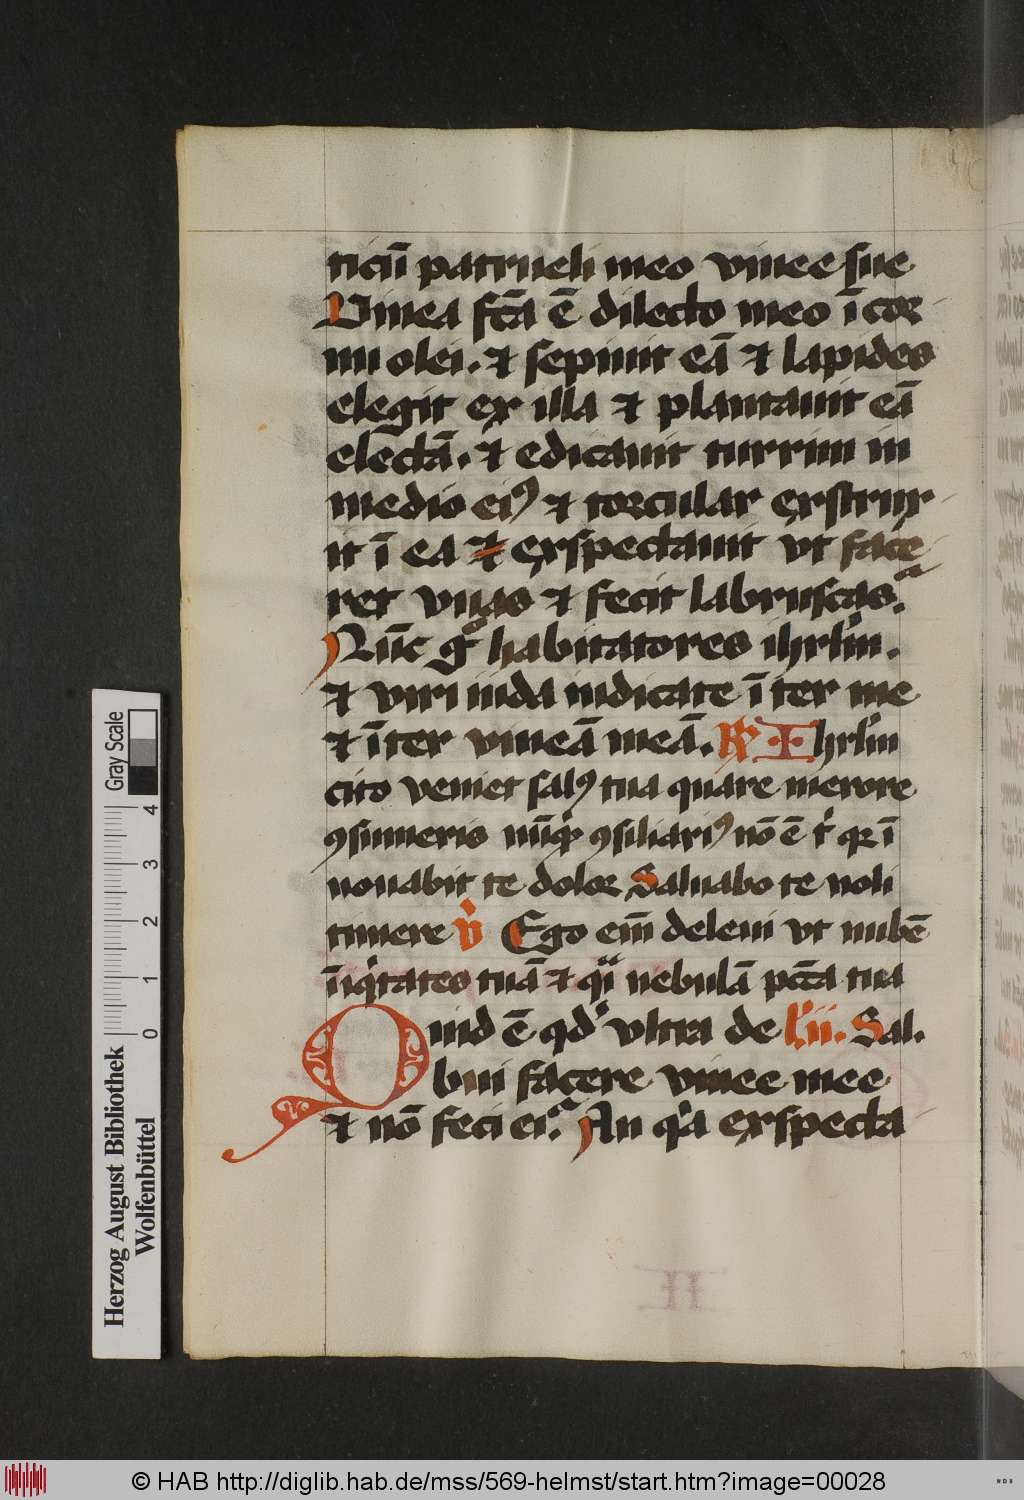 ticū patrueli meo vinee sue
Vinea fc̄a ē dilecto meo ī cor
nu olei. et sepiuit eā et lapides
elegit ex illa et plantauit eā
electā. et edicauit turrim in
medio eiꝰ et torcular exstrux
it ī ea et exspectauit vt face
ret vuas et fecit labruscas.
Nūc gͦ habitatores ihrl̄m.
et viri iuda iudicate īter me
et īter vineā meā. R̸ Ihrl̄m
cito veniet salꝰ tua quare merore
ꝯsumeris nūqͥd ꝯsiliariꝰ nō ē tͥ qr ī
nouabit te dolor Saluabo te noli
timere v̄ Ego em̄ deleui vt nubē
īiqͥtates tuā et qᷓi nebulā pcc̄a tua
Quid ē qdͬ vltra de l̄c̄ ii. Sal.
bui facere vinee mee
et nō feci ei. An qͥa exspecta
II
Gray Scale
4
3
2
1
0
Herzog August Bibliothek
Wolfenbüttel
© HAB http://diglib.hab.de/mss/569-helmst/start.htm?image=00028